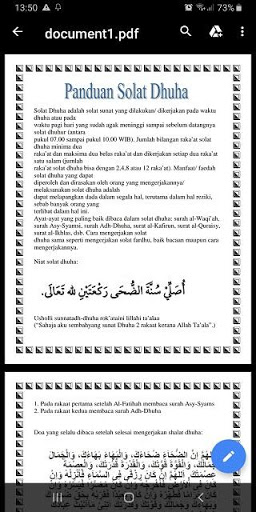 13:50
73%
document1.pdf
Panduan Solat Dhuha
Solat Dhuha adalah solat sunat yang dilakukan/ dikerjakan pada waktu
dhuha atau pada
waktu pagi hari yang sudah agak meninggi sampai sebelum datangnya
solat dhuhur (antara
pukul 07.00 sampai pukul 10.00 WIB). Jumlah bilangan raka'at solat
dhuha minima dua
raka'at dan maksima dua belas raka'at dan dikerjakan setiap dua raka'at
satu salam (jumlah
raka'at solat dhuha bisa dengan 2,4,8 atau 12 raka'at). Manfaat/ faedah
solat dhuha yang dapat
diperoleh dan dirasakan oleh orang yang mengerjakannya/
melaksanakan solat dhuha adalah
dapat melapangkan dada dalam segala hal, terutama dalam hal reriki,
sebab banyak orang yang
terlibat dalam hal ini.
Ayat-ayat yang paling baik dibaca dalam solat dhuha: surah al-Waqi'ah,
surah Asy-Syamsi, surah Adh-Dhuha, surat al-Kafirun, surat al-Quraisy,
surat al-Ikhlas, dsb. Cara mengerjakan solat
dhuha sama seperti mengerjakan solat fardhu, baik bacaan maupun cara
mengerjakannya.
Niat solat dhuha:
أُصَلِّيْ سُنَّةَ الضُّحَى رَكْعَتَيْنِ لله تَعَالَى.
Usholli sunnatadh-dhuha rok'ataini lillahi ta'alaa
("Sahaja aku sembahyang sunat Dhuha 2 rakaat kerana Allah Ta'ala".)
1. Pada rakaat pertama setelah Al-Fatihah membaca surah Asy-Syams
2. Pada rakaat kedua membaca surah Adh-Dhuha
Doa yang selalu dibaca setelah selesai mengerjakan shalat dhuha:
اَللّٰهُمَّ اِنَّ الضُّحَآءَ ضُحَاءُكَ، وَالْبَهَاءَ بَهَاءُكَ، وَالْجَمَالَ
جَمَالُكَ، وَالْقُوَّةَ قُوَّتُكَ، وَالْقُدْرَةَ قُدْرَتُكَ، وَالْعِصْمَةَ